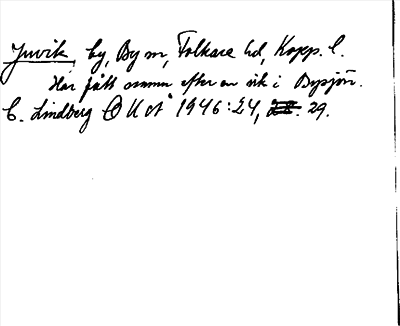 Juvik, by, By sn, Folkare hd, Kopp. l.
Har fått namn efter en vik i Bysjön.
C. Lindberg OUot 1946:24, 28. 29.